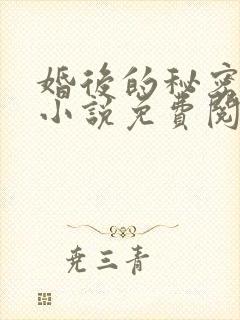 婚後的秘密
小說免費閱
尭三青